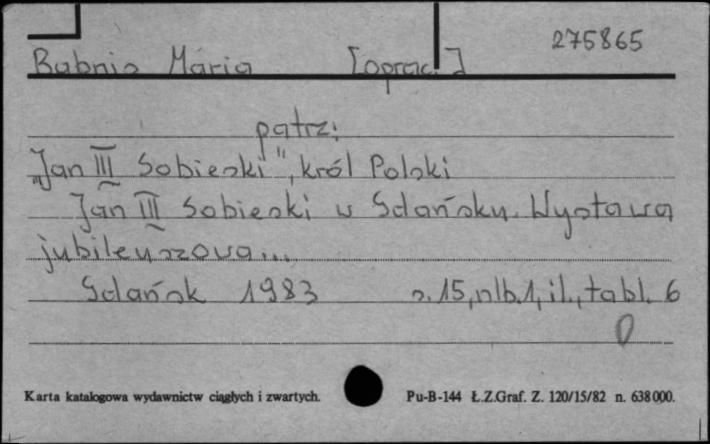 275865
Babnis Maria [oprac.]
patrz:
"Jan III Sobieski", król Polski
Jan III Sobieski w Gdańsku. Wystawa
jubileuszowa...
Gdańsk 1983 s. 15, nlb. 1, il., tabl. 6
Karta katalogowa wydawnictw ciągłych i zwartych. Pu-B-144 Ł.Z.Graf. Z. 120/15/82 n. 638 000.